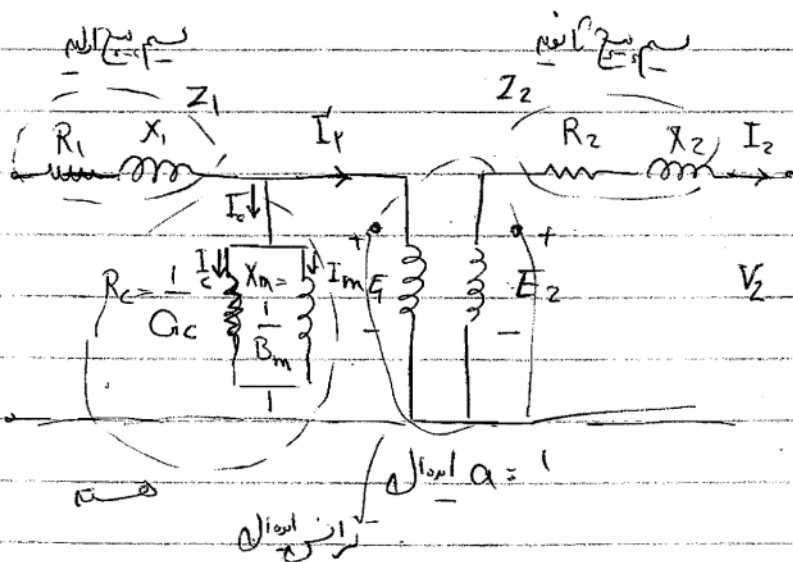 سیم پیچ اولیه سیم پیچ ثانویه
Z₁ Z₂
R₁ X₁ I₂' R₂ X₂ I₂
I₀↓
+ +
R_c = 1/G_c I_c↓ X_m = 1/B_m ↓I_m E₁ E₂ V₂
- -
هسته
ایده آل a = 1
ترانس ایده آل